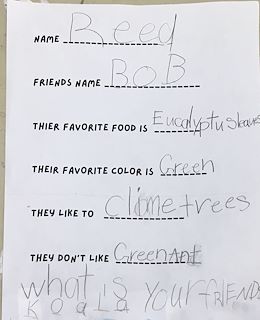 NAME Reed
FRIENDS NAME BOB
THIER FAVORITE FOOD IS Eucalyptus leaves
THEIR FAVORITE COLOR IS Green
THEY LIKE TO Clime trees
THEY DON'T LIKE Green Ant
what is your frIENDS
Koala